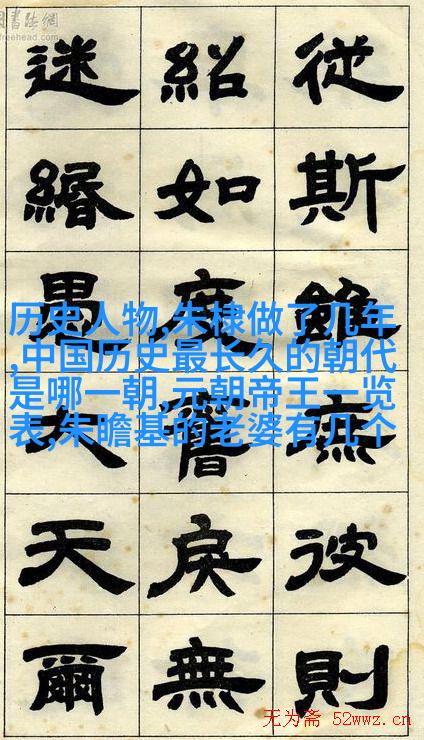 書法網
freehead.com
從斯彼則
紹如度戾無
迷緍愚天爾
历史人物,朱棣做了几年
,中国历史最长久的朝代
是哪一朝,元朝帝王一览
表,朱瞻基的老婆有几个
无为斋 52wwz.cn